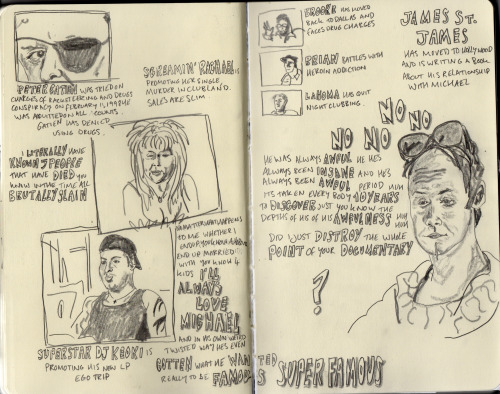 PETER GATIEN WAS TRIED ON
CHARGES OF RACKETEERING AND DRUGS
CONSPIRACY ON FEBRUARY 11, 1998 HE
WAS ACQUITTED ON ALL COUNTS.
GATIEN HAS DENIED
USING DRUGS.
SCREAMIN' RACHAEL IS
PROMOTING HER SINGLE,
MURDER IN CLUBLAND.
SALES ARE SLIM
I LITERALLY HAVE
KNOWN 5 PEOPLE
THAT HAVE DIED YOU
KNOW IN THE TIME ALL
BRUTALLY SLAIN
NO MATTER WHAT HAPPENS
TO ME WHETHER I
END UP
END UP MARRIED
WITH YOU KNOW 4
KIDS I'LL
ALWAYS
LOVE
MICHAEL
AND IN HIS OWN WEIRD
TWISTED WAY HE'S EVEN
GOTTEN WHAT HE WANTED
REALLY TO BE FAMOUS
SUPERSTAR DJ KEOKI IS
PROMOTING HIS NEW LP
EGO TRIP
BROOKE HAS MOVED
BACK TO DALLAS AND
FACES DRUG CHARGES
BRIAN BATTLES WITH
HEROIN ADDICTION
LAHOMA HAS QUIT
NIGHT CLUBBING.
JAMES ST.
JAMES
HAS MOVED TO HOLLYWOOD
AND IS WRITING A BOOK
ABOUT HIS RELATIONSHIP
WITH MICHAEL
NO NO
NO NO
HE WAS ALWAYS AWFUL HE HES
ALWAYS BEEN INSANE AND HE'S
ALWAYS BEEN AWFUL PERIOD HMM
ITS TAKEN EVERY BODY 10 YEARS
TO DISCOVER JUST YOU KNOW THE
DEPTHS OF HIS OF HIS AWFULNESS HMM HMM
DID I JUST DISTROY THE WHOLE
POINT OF YOUR DOCUMENTARY
?
SUPER FAMOUS